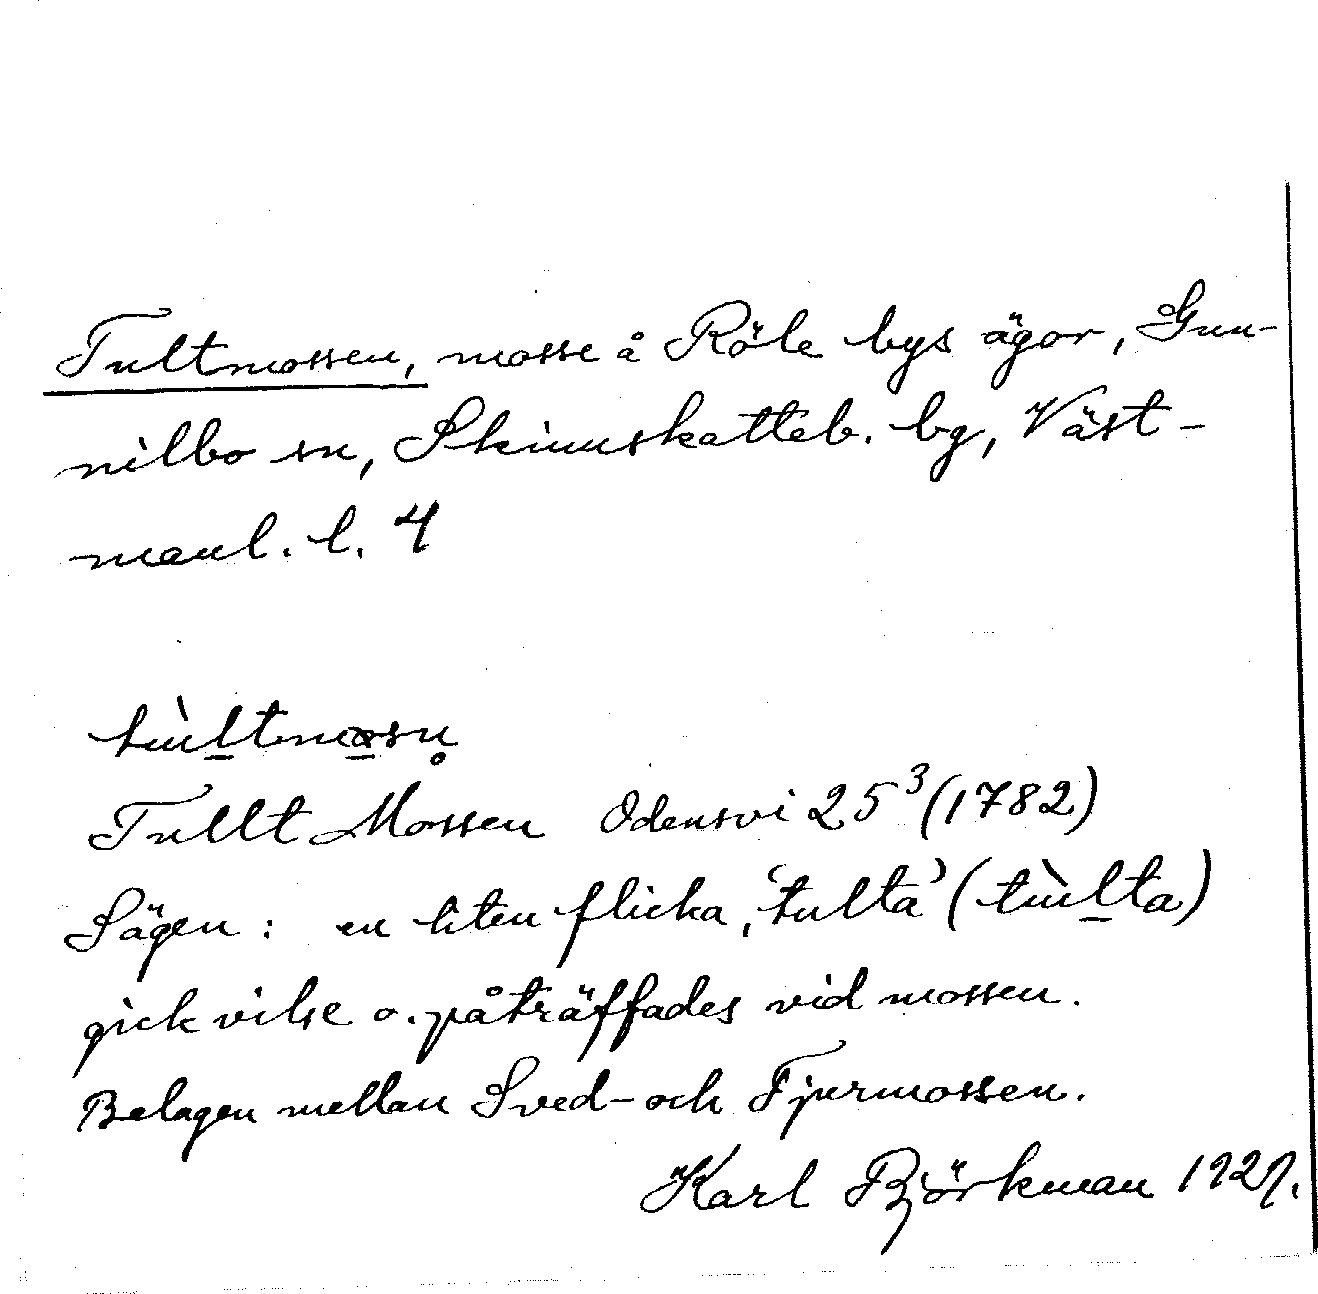 Tultmossen, mosse å Röle bys ägor, Gun-
nilbo sn, Skinnskatteb. bg, Väst-
manl. l. 4
tùltmosn̥
Tullt Mossen Odensvi 25³ (1782)
Sägen: en liten flicka, 'tulta' (tùlta)
gick vilse o. påträffades vid mossen.
Belagen mellan Sved- och Fjurmossen.
Karl Björkman 1927.